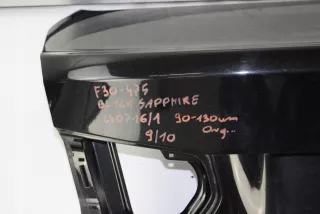 F30-475
BLACK SAPPHIRE
16/1 90-130um
9/10 Org...